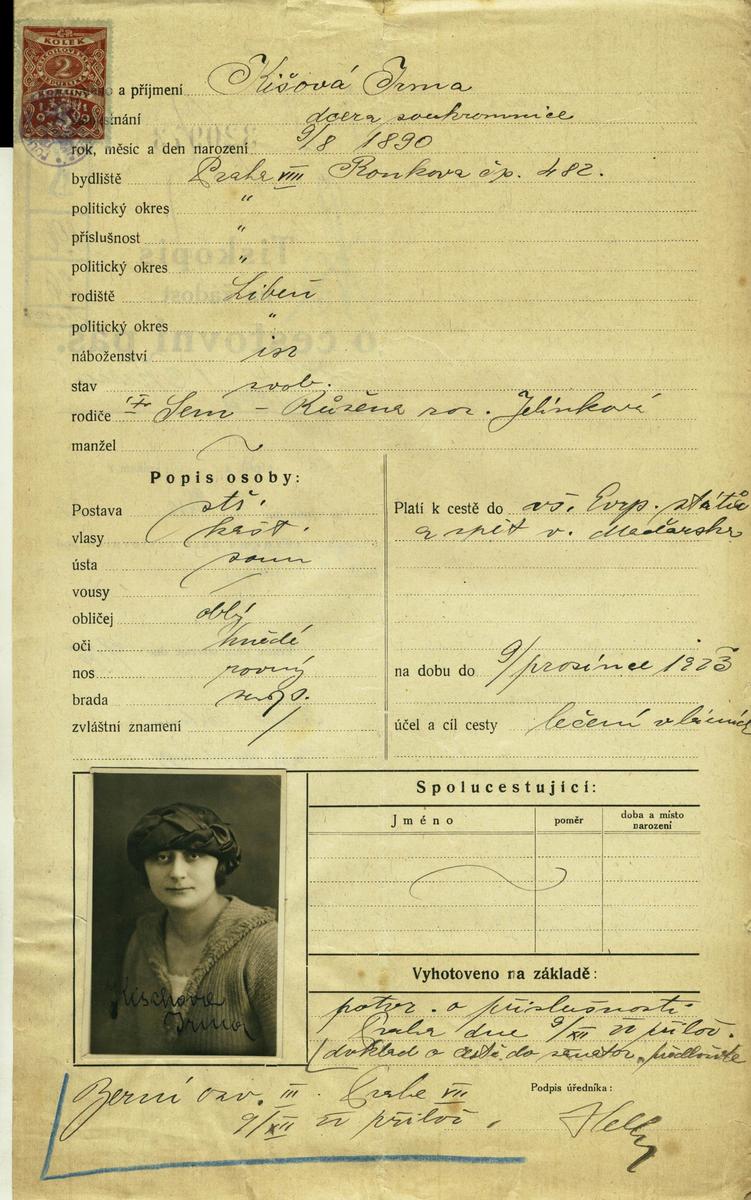 KOLEK
2
a příjmení Kišová Irma
dcera soukromnice
rok, měsíc a den narození 9/8 1890
bydliště Praha VIII Ronkova čp. 482.
politický okres "
příslušnost "
politický okres "
rodiště Libeň
politický okres "
náboženství isr
stav svob.
rodiče Sem - Růžena roz. Jelínková
manžel
Popis osoby:
Postava stř.
vlasy kašt.
ústa soum
vousy /
obličej oblý
oči hnědé
nos rovný
brada
zvláštní znamení /
Platí k cestě do vš. Evrp. států
a zpět v. Maďarska
na dobu do 9/prosince 1923
účel a cíl cesty léčení v
Kischova
Irma
Spolucestující:
Jméno
poměr
doba a místo
narození
Vyhotoveno na základě:
potvr. o příslušnosti
Praha dne 9/XII 22 přilož.
doklad o cestě do předložte
Podpis úředníka:
Berní III. Praha VII
9/XII 22 přilož.